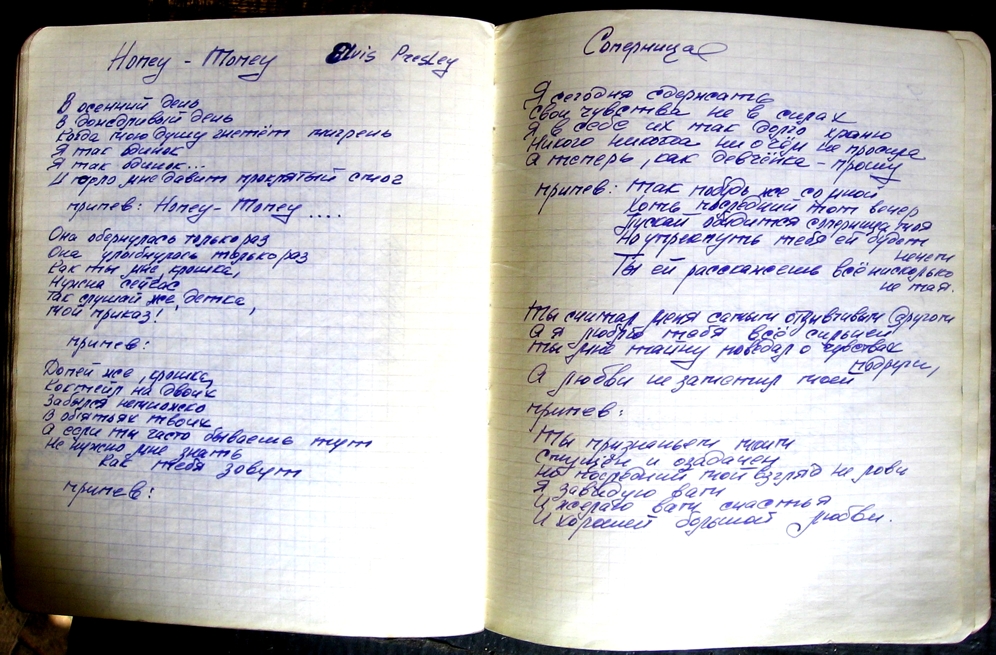 Honey - Money Elvis Presley
В осенний день
В дождливый день
Когда мою душу гнетёт мигрень
Я так одинок
Я так одинок...
И горло мне давит проклятый смог
припев: Honey - Money ....
Она обернулась только раз
Она улыбнулась только раз
Как ты мне, крошка,
Нужна сейчас
Так слушай же, детка,
мой приказ!
припев:
Допей же, крошка,
Коктейл на двоих
Забылся немножко
В объятьях твоих
А если ты часто бываешь тут
Не нужно мне знать
Как тебя зовут
припев:
Соперница
Я сегодня сдержать
Свои чувства не в силах
Я в себе их так долго храню
Никого никогда ни о чём не просила
А теперь, как девчёнка - прошу
припев: Так побудь же со мной
Хоть последний тот вечер
Пускай обидится соперница моя
Но упрекнуть тебя ей будет
нечем
Ты ей расскажешь всё нисколько
не тая.
Ты считал меня самым отзывчивым другом
А я люблю тебя всё сильней
Ты мне тайну поведал о чувствах
подруги,
А любви не заметил моей
припев:
Ты признаньем моим
Смущён и озадачен
Но последний мой взгляд не лови
Я завидую вам
И желаю вам счастья
И хорошей большой любви.